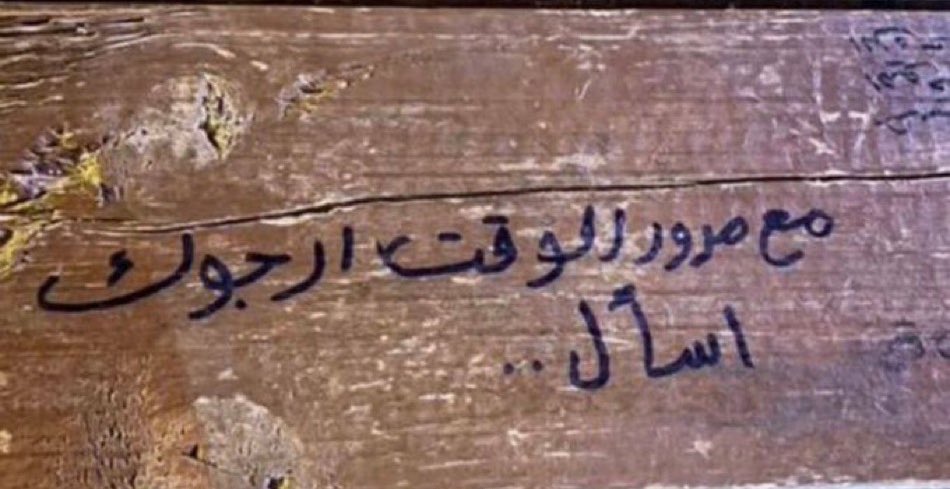 مع مرور الوقت ارجوك
اسأل ..